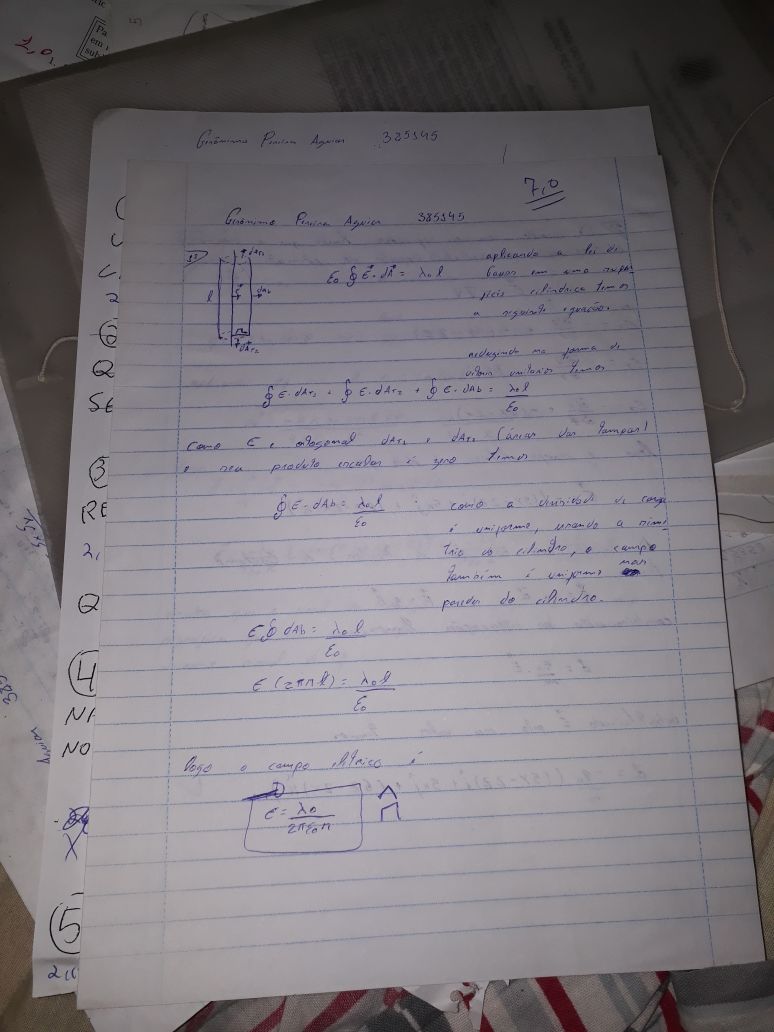 2,0
1.
Pa
em
sub
Gerônimo Pereira Aguiar 385145
7,0
Gerônimo Pereira Aguiar 385145
1ª)
dAT1
l
E
dAb
r
dAT2
ε₀ ∮ E⃗ · dA⃗ = λ₀ l
aplicando a lei de
Gauss em uma super
fície cilíndrica temos
a seguinte equação.
na forma de
unitários temos
∮ E · dAT1 + ∮ E · dAT2 + ∮ E · dAb = λ₀ l / ε₀
como E e ortogonal dAT1 e dAT2 (áreas das tampas)
o seu produto escalar é zero temos
∮ E · dAb = λ₀ l / ε₀
como a densidade de carga
é uniforme, usando a sime
tria do cilindro, o campo
também é uniforme nas
paredes do cilindro.
E ∮ dAb = λ₀ l / ε₀
E (2πrl) = λ₀ l / ε₀
Logo o campo elétrico é
E = λ₀ / 2πε₀r r̂
6
Q
SE
3
RE
2,
Q
4
NA
NO
X
5
2,0